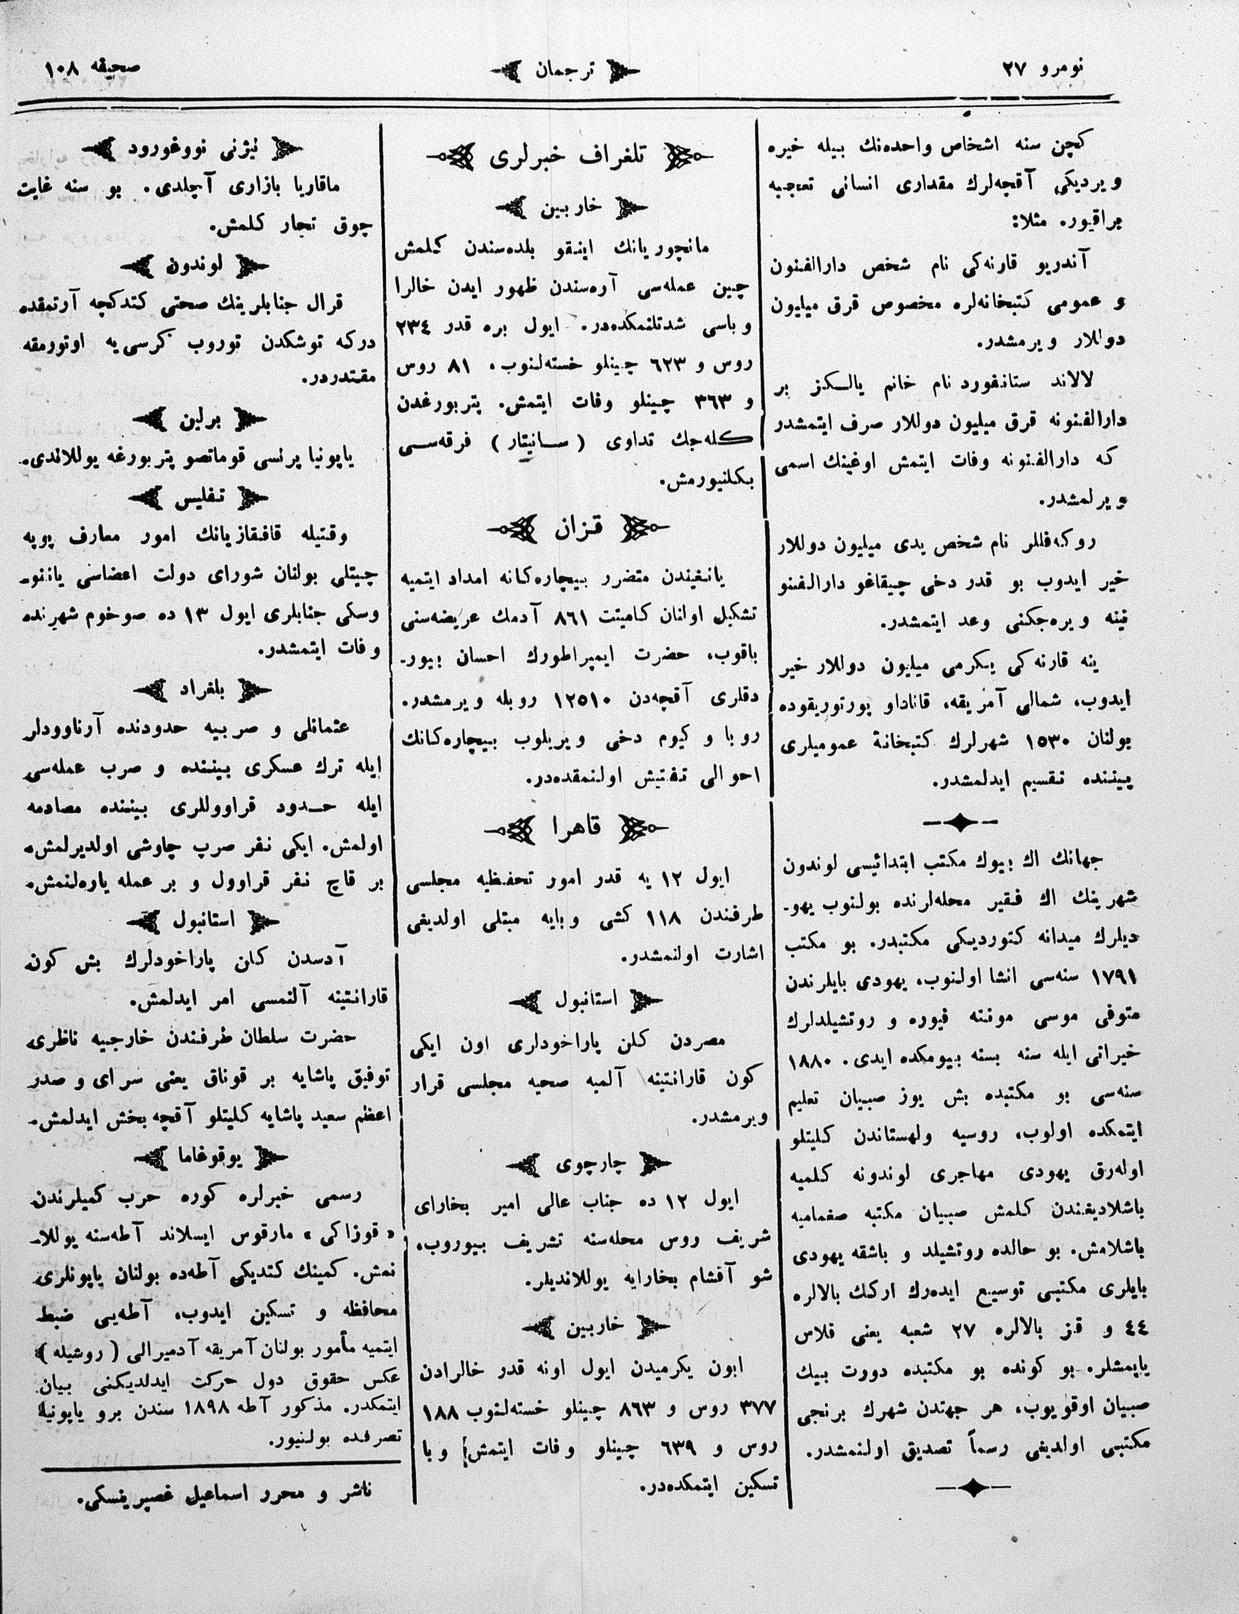 نومرو ٢٧
ترجمان
صحیفه ١٠٨
كچن سنه اشخاص واحده‌نك بیله خیره
ویردیكی آقچه‌لرك مقداری انسانی تعجبه
براقیور. مثلا:
آندریو قارنه‌كی نام شخص دارالفنون
و عمومی كتبخانه‌لره مخصوص قرق میلیون
دوللار ویرمشدر.
لالاند ستانفورد نام خانم یالكز بر
دارالفنونه قرق میلیون دوللار صرف ایتمشدر
كه دارالفنونه وفات ایتمش اوغینك اسمی
ویرلمشدر.
روكه‌فللر نام شخص یدی میلیون دوللار
خیر ایدوب بو قدر دخی چیقاغو دارالفنو
نینه ویره‌جكنی وعد ایتمشدر.
ینه قارنه‌كی یكرمی میلیون دوللار خیر
ایدوب، شمالی آمریقه، قاناداو پورتوریقوده
بولنان ١٥٣٠ شهرلرك كتبخانهٔ عمومیلری
بیننده تقسیم ایدلمشدر.
جهانك اك بیوك مكتب ابتدائیسی لوندون
شهرینك اك فقیر محله‌لرنده بولنوب یهو-
دیلرك میدانه كتوردیكی مكتبدر. بو مكتب
١٧٩١ سنه‌سی انشا اولنوب، یهودی بایلرندن
متوفی موسی مونته فیوره و روتشیلدلرك
خیراتی ایله سنه بسنه بیومكده ایدی. ١٨٨٠
سنه‌سی بو مكتبده بش یوز صبیان تعلیم
ایتمكده اولوب، روسیه ولهستاندن كلیتلو
اوله‌رق یهودی مهاجری لوندونه كلمیه
باشلادیغندن كلمش صبیان مكتبه صغمامیه
باشلامش. بو حالده روتشیلد و باشقه یهودی
بایلری مكتبی توسیع ایده‌رك اركك بالالره
٤٤ و قز بالالره ٢٧ شعبه یعنی قلاس
یاپمشلر. بو كونده بو مكتبده دووت بیك
صبیان اوقویوب، هر جهتدن شهرك برنجی
مكتبی اولدیغی رسماً تصدیق اولنمشدر.
تلغراف خبرلری
خاربین
مانچوریانك اینقو بلده‌سندن كلمش
چین عمله‌سی آره‌سندن ظهور ایدن خالرا
وباسی شدتلنمكده‌در. ایول بره قدر ٢٣٤
روس و ٦٢٣ چینلو خسته‌لنوب، ٨١ روس
و ٣٦٣ چینلو وفات ایتمش. پتربورغدن
كله‌جك تداوی (سانیتار) فرقه‌سی
بكلنیورمش.
قزان
یانغیندن متضرر بیچاره‌كانه امداد ایتمیه
تشكیل اولنان كامیتت ٨٦١ آدمك عریضه‌سنی
باقوب، حضرت ایمپراطورك احسان بیور-
دقلری آقچه‌دن ١٢٥١٠ روبله ویرمشدر.
روبا و كیوم دخی ویریلوب بیچاره‌كانك
احوالی تفتیش اولنمقده‌در.
قاهرا
ایول ١٢ یه قدر امور تحفظیه مجلسی
طرفندن ١١٨ كشی وبایه مبتلی اولدیغی
اشارت اولنمشدر.
استانبول
مصردن كلن پاراخودلری اون ایكی
كون قارانتینه آلمیه صحیه مجلسی قرار
ویرمشدر.
چارچوی
ایول ١٢ ده جناب عالی امیر بخارای
شریف روس محله‌سنه تشریف بیوروب،
شو آقشام بخارایه یوللاندیلر.
خاربین
ایون یكرمیدن ایول اونه قدر خالرادن
٣٧٧ روس و ٨٦٣ چینلو خسته‌لنوب ١٨٨
روس و ٦٣٩ چینلو وفات ایتمش وبا
تسكین ایتمكده‌در.
نیژنی نووغورود
ماقاریا بازاری آچلدی. بو سنه غایت
چوق تجار كلمش.
لوندون
قرال جنابلرینك صحتی كتدكچه آرتمقده
دركه توشكدن توروب كرسی‌یه اوتورمقه
مقتدردر.
برلین
یاپونیا پرنسی قوماتصو پتربورغه یوللاندی.
تفلیس
وقتیله قافقازیانك امور معارف پوپه
چیتلی بولنان شورای دولت اعضاسی یانو-
وسكی جنابلری ایول ١٣ ده صوخوم شهرنده
وفات ایتمشدر.
بلغراد
عثمانلی و صربیه حدودنده آرناوودلر
ایله ترك عسكری بیننده و صرب عمله‌سی
ایله حدود قراووللری بیننده مصادمه
اولمش. ایكی نفر صرب چاوشی اولدیرلمش،
بر قاچ نفر قراوول و بر عمله یاره‌لنمش.
استانبول
آدسدن كلن پاراخودلرك بش كون
قارانتینه آلنمسی امر ایدلمش.
حضرت سلطان طرفندن خارجیه ناظری
توفیق پاشایه بر قوناق یعنی سرای و صدر
اعظم سعید پاشایه كلیتلو آقچه بخش ایدلمش.
یوقوغاما
رسمی خبرلره كوره حرب كمیلرندن
«قوزاكی» مارقوس ایسلاند آطه‌سنه یوللا-
نمش. كمینك كتدیكی آطه‌ده بولنان یاپونلری
محافظه و تسكین ایدوب، آطه‌یی ضبط
ایتمیه مأمور بولنان آمریقه آدمیرالی (روشیله)
عكس حقوق دول حركت ایدلدیكنی بیان
ایتمكدر. مذكور آطه ١٨٩٨ سندن برو یاپونیا
تصرفده بولنیور.
ناشر و محرر اسماعیل غصپرینسكی.